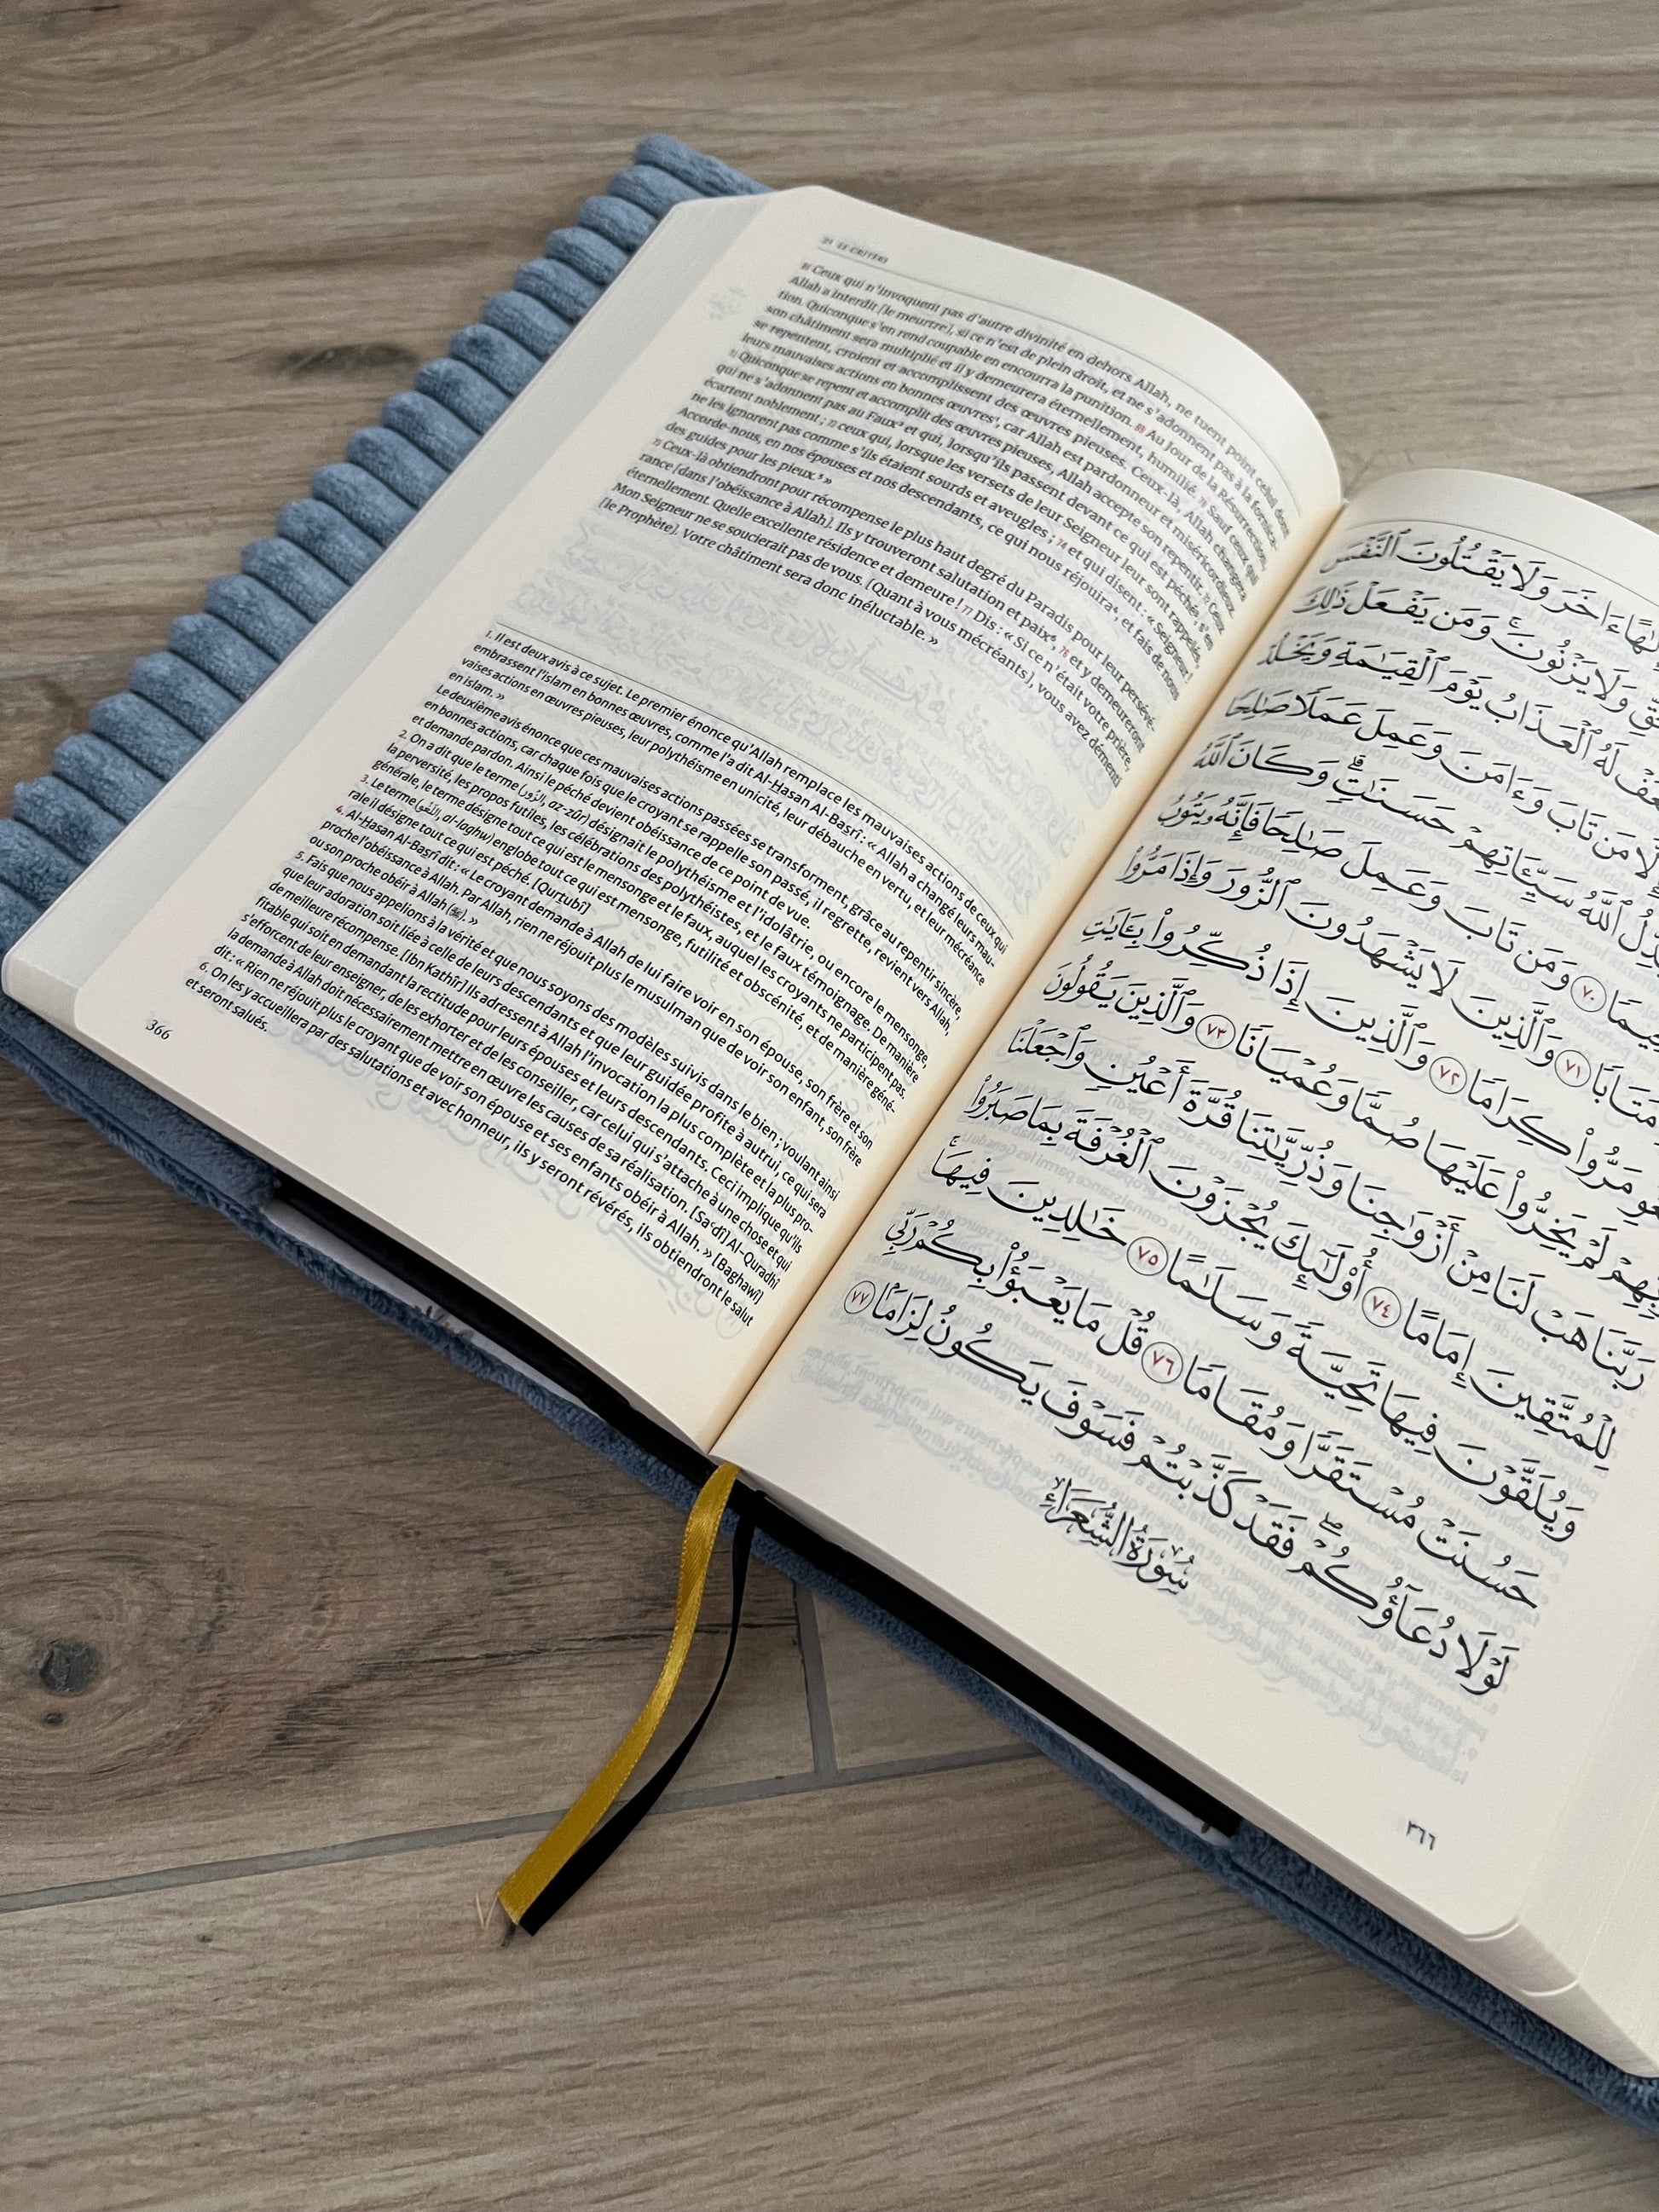 LE CRITÈRE
68 Ceux qui n'invoquent pas d'autre divinité en dehors Allah, ne tuent point celui dont
Allah a interdit [le meurtre], si ce n'est de plein droit, et ne s'adonnent pas à la fornica-
tion. Quiconque s'en rend coupable en encourra la punition. 69 Au Jour de la Résurrection,
son châtiment sera multiplié et il y demeurera éternellement, humilié. 70 Sauf ceux qui
se repentent, croient et accomplissent des œuvres pieuses. Ceux-là, Allah changera
leurs mauvaises actions en bonnes œuvres¹, car Allah est pardonneur et miséricordieux
71 Quiconque se repent et accomplit des œuvres pieuses, Allah accepte son repentir. 72 Ceux
qui ne s'adonnent pas au Faux² et qui, lorsqu'ils passent devant ce qui est péché³, s'en
écartent noblement ; 73 ceux qui, lorsque les versets de leur Seigneur leur sont rappelés,
ne les ignorent pas comme s'ils étaient sourds et aveugles ; 74 et qui disent : « Seigneur !
Accorde-nous, en nos épouses et nos descendants, ce qui nous réjouira⁴, et fais de nous
des guides pour les pieux.⁵ »
75 Ceux-là obtiendront pour récompense le plus haut degré du Paradis pour leur persévé-
rance [dans l'obéissance à Allah]. Ils y trouveront salutation et paix⁶, 76 et y demeureront
éternellement. Quelle excellente résidence et demeure ! 77 Dis : « Si ce n'était votre prière,
Mon Seigneur ne se soucierait pas de vous. [Quant à vous mécréants], vous avez démenti
[le Prophète]. Votre châtiment sera donc inéluctable. »
1. Il est deux avis à ce sujet. Le premier énonce qu'Allah remplace les mauvaises actions de ceux qui
embrassent l'islam en bonnes œuvres, comme l'a dit Al-Hasan Al-Basrî : « Allah a changé leurs mau-
vaises actions en œuvres pieuses, leur polythéisme en unicité, leur débauche en vertu, et leur mécréance
en islam. »
Le deuxième avis énonce que ces mauvaises actions passées se transforment, grâce au repentir sincère,
en bonnes actions, car chaque fois que le croyant se rappelle son passé, il regrette, revient vers Allah,
et demande pardon. Ainsi le péché devient obéissance de ce point de vue.
2. On a dit que le terme (الزُّور, az-zûr) désignait le polythéisme et l'idolâtrie, ou encore le mensonge,
la perversité, les propos futiles, les célébrations des polythéistes, et le faux témoignage. De manière
générale, le terme désigne tout ce qui est le mensonge et le faux, auquel les croyants ne participent pas.
3. Le terme (اللَّغْو, al-laghw) englobe tout ce qui est mensonge, futilité et obscénité, et de manière géné-
rale il désigne tout ce qui est péché. [Qurtubî]
4. Al-Hasan Al-Basrî dit : « Le croyant demande à Allah de lui faire voir en son épouse, son frère et son
proche l'obéissance à Allah. Par Allah, rien ne réjouit plus le musulman que de voir son enfant, son frère
ou son proche obéir à Allah (ﷻ). »
5. Fais que nous appelions à la vérité et que nous soyons des modèles suivis dans le bien ; voulant ainsi
que leur adoration soit liée à celle de leurs descendants et que leur guidée profite à autrui, ce qui sera
de meilleure récompense. [Ibn Kathîr] Ils adressent à Allah l'invocation la plus complète et la plus pro-
fitable qui soit en demandant la rectitude pour leurs épouses et leurs descendants. Ceci implique qu'ils
s'efforcent de leur enseigner, de les exhorter et de les conseiller, car celui qui s'attache à une chose et qui
la demande à Allah doit nécessairement mettre en œuvre les causes de sa réalisation. [Sa'dî] Al-Quradhî
dit : « Rien ne réjouit plus le croyant que de voir son épouse et ses enfants obéir à Allah. » [Baghawî]
6. On les y accueillera par des salutations et avec honneur, ils y seront révérés, ils obtiendront le salut
et seront salués.
366
ءَاخَرَ وَلَا يَقْتُلُونَ ٱلنَّفْسَ
وَلَا يَزْنُونَ ۚ وَمَن يَفْعَلْ ذَٰلِكَ
لَهُ ٱلْعَذَابُ يَوْمَ ٱلْقِيَٰمَةِ وَيَخْلُدْ
مَن تَابَ وَءَامَنَ وَعَمِلَ عَمَلًا صَٰلِحًا
ٱللَّهُ سَيِّـَٔاتِهِمْ حَسَنَٰتٍ ۗ وَكَانَ ٱللَّهُ
٧٠ وَمَن تَابَ وَعَمِلَ صَٰلِحًا فَإِنَّهُۥ يَتُوبُ
مَتَابًا ٧١ وَٱلَّذِينَ لَا يَشْهَدُونَ ٱلزُّورَ وَإِذَا مَرُّوا۟
مَرُّوا۟ كِرَامًا ٧٢ وَٱلَّذِينَ إِذَا ذُكِّرُوا۟ بِـَٔايَٰتِ
لَمْ يَخِرُّوا۟ عَلَيْهَا صُمًّا وَعُمْيَانًا ٧٣ وَٱلَّذِينَ يَقُولُونَ
رَبَّنَا هَبْ لَنَا مِنْ أَزْوَٰجِنَا وَذُرِّيَّٰتِنَا قُرَّةَ أَعْيُنٍ وَٱجْعَلْنَا
لِلْمُتَّقِينَ إِمَامًا ٧٤ أُو۟لَٰٓئِكَ يُجْزَوْنَ ٱلْغُرْفَةَ بِمَا صَبَرُوا۟
وَيُلَقَّوْنَ فِيهَا تَحِيَّةً وَسَلَٰمًا ٧٥ خَٰلِدِينَ فِيهَا ۚ
حَسُنَتْ مُسْتَقَرًّا وَمُقَامًا ٧٦ قُلْ مَا يَعْبَؤُا۟ بِكُمْ رَبِّى
لَوْلَا دُعَآؤُكُمْ ۖ فَقَدْ كَذَّبْتُمْ فَسَوْفَ يَكُونُ لِزَامًۢا ٧٧
سُورَةُ الشُّعَرَاءِ
٣٦٦